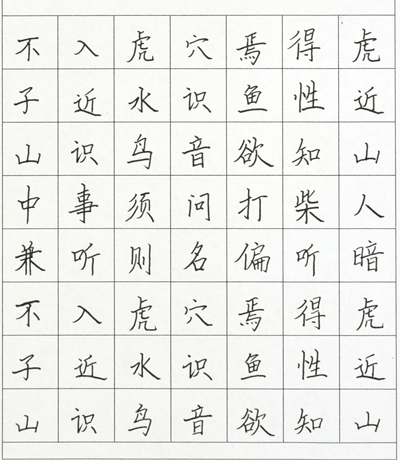 不入虎穴焉得虎
子近水识鱼性近
山识鸟音欲知山
中事须问打柴人
兼听则名偏听暗
不入虎穴焉得虎
子近水识鱼性近
山识鸟音欲知山